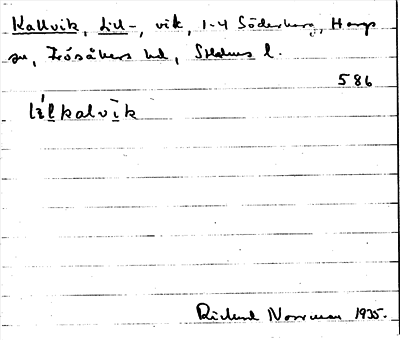 Kallvik, Lill-, vik, 1-4 Söderberg, Hargs
sn, Frösåkers hd, Sthlms l.
586
líl kalvīk
Rickard Norrman 1935.